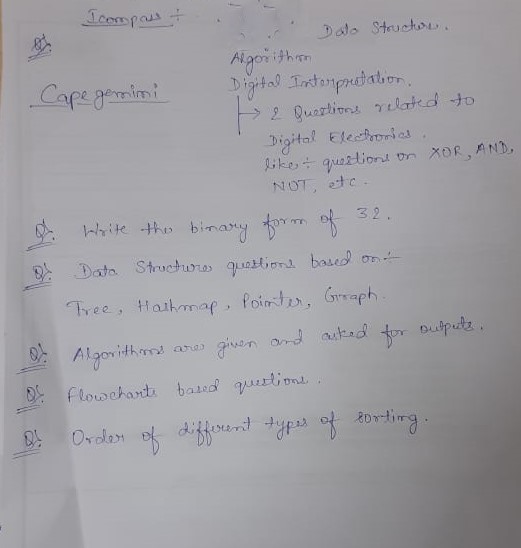 Icompass ÷
Data Structure.
Q).
Algorithm
Digital Interpretation.
Capegemini
↳ 2 Questions related to
Digital Electronics.
like ÷ questions on XOR, AND,
NOT, etc.
Q). Write the binary form of 32.
Q). Data Structures questions based on ÷
Tree, Hashmap, Pointer, Graph.
Q). Algorithms are given and asked for outputs.
Q). Flowcharts based questions.
Q). Order of different types of sorting.